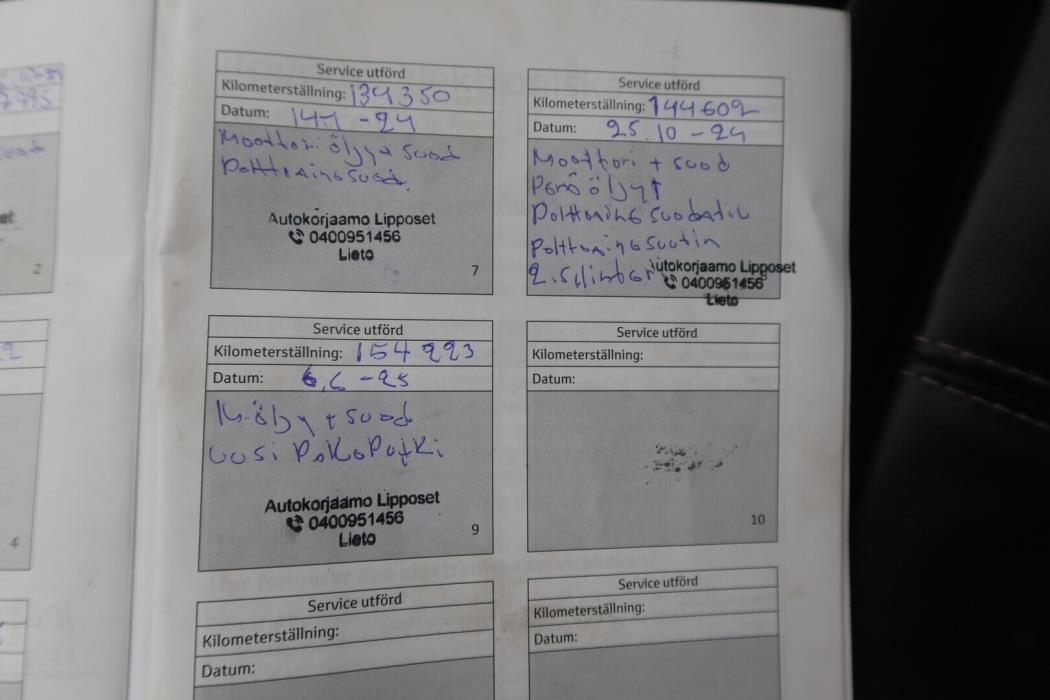 7795
2
4
Service utförd
Kilometerställning: 134350
Datum: 14.1 -24
Moottori öljy + suod
Polttoainesuod.
Autokorjaamo Lipposet
0400951456
Lieto
7
Service utförd
Kilometerställning: 144602
Datum: 25.10 -24
Moottori + suod
Perä öljyt
Polttoaine suodatin
Polttoainesuotin
2. sylinteri
Autokorjaamo Lipposet
0400951456
Lieto
Service utförd
Kilometerställning: 154223
Datum: 6.6 -25
M-öljy + suod
uusi PakoPutki
Autokorjaamo Lipposet
0400951456
Lieto
9
Service utförd
Kilometerställning:
Datum:
10
Service utförd
Kilometerställning:
Datum:
Service utförd
Kilometerställning:
Datum: